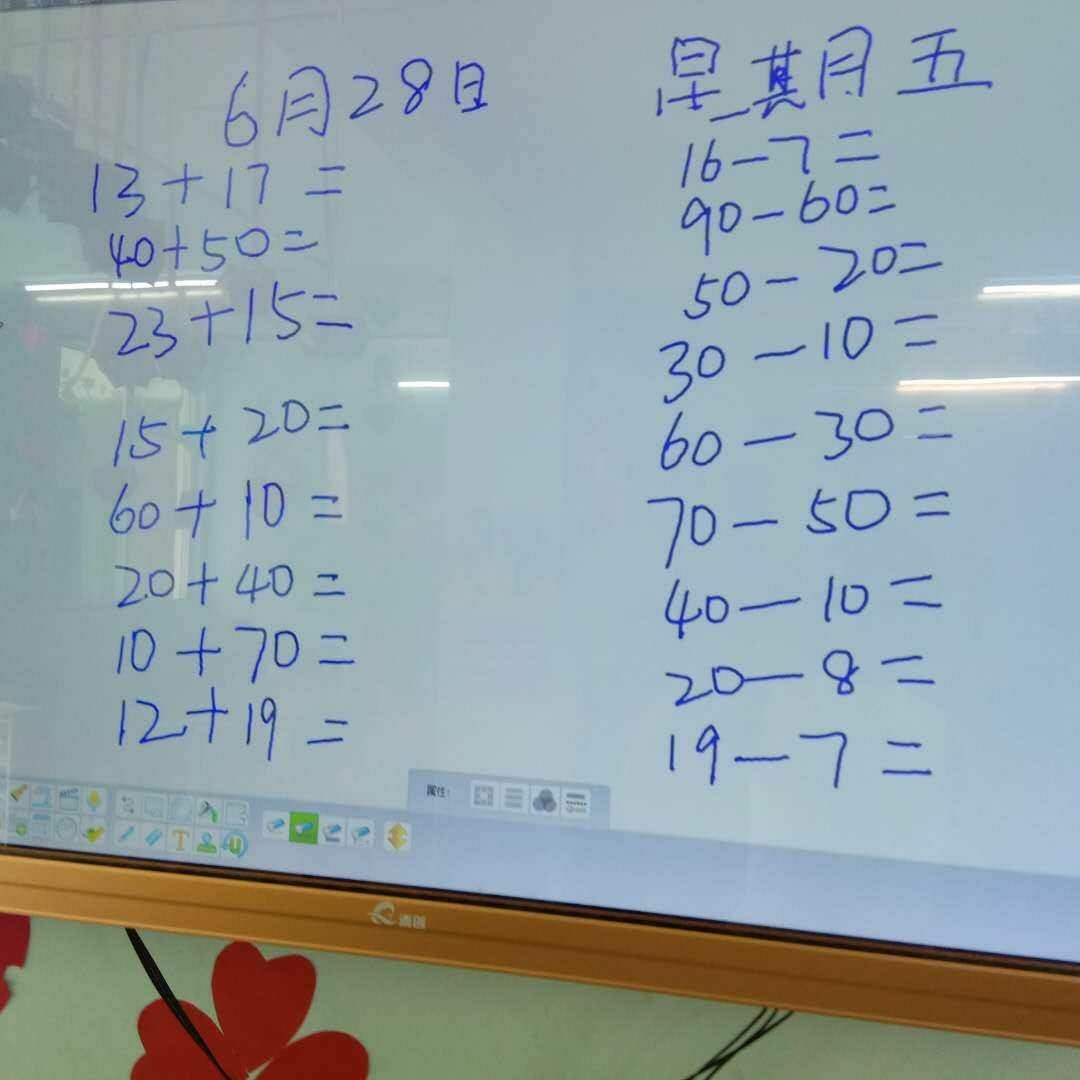 6月28日
13+17=
40+50=
23+15=
15+20=
60+10=
20+40=
10+70=
12+19=
星期五
16-7=
90-60=
50-20=
30-10=
60-30=
70-50=
40-10=
20-8=
19-7=
属性:
T
U